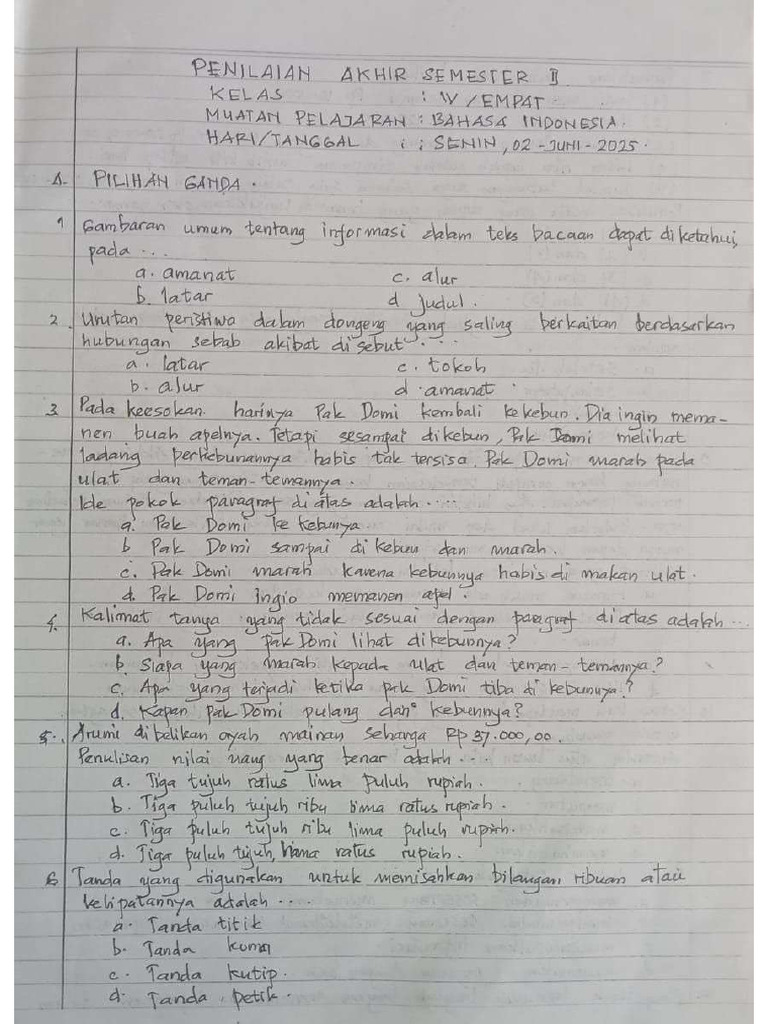 PENILAIAN AKHIR SEMESTER II
KELAS : IV/EMPAT
MUATAN PELAJARAN : BAHASA INDONESIA.
HARI/TANGGAL : : SENIN, 02-JUNI-2025.
A. PILIHAN GANDA.
1 Gambaran umum tentang informasi dalam teks bacaan dapat diketahui,
pada ...
a. amanat c. alur
b. latar d judul.
2. Urutan peristiwa dalam dongeng yang saling berkaitan berdasarkan
hubungan sebab akibat disebut ...
a. latar c. tokoh
b. alur d. amanat
3 Pada keesokan harinya Pak Domi kembali kekebun. Dia ingin mema-
nen buah apelnya. Tetapi sesampai dikebun, Pak Domi melihat
ladang perkebunannya habis tak tersisa. Pak Domi marah pada
ulat dan teman-temannya.
Ide pokok paragraf diatas adalah ....
a. Pak Domi ke kebunya
b Pak Domi sampai di kebun dan marah.
c. Pak Domi marah karena kebunnya habis di makan ulat.
d. Pak Domi ingin memanen apel.
4. Kalimat tanya yang tidak sesuai dengan paragraf diatas adalah ...
a. Apa yang Pak Domi lihat dikebunnya?
b. Siapa yang marah kepada ulat dan teman-temannya?
c. Apa yang terjadi ketika pak Domi tiba di kebunnya?
d. Kapan pak Domi pulang dari kebunnya?
5. Arumi dibelikan ayah mainan seharga Rp 37.000,00.
Penulisan nilai uang yang benar adalah ...
a. Tiga tujuh ratus lima puluh rupiah.
b. Tiga puluh tujuh ribu lima ratus rupiah.
c. Tiga puluh tujuh ribu lima puluh rupiah.
d. Tiga puluh tujuh, lima ratus rupiah.
6 Tanda yang digunakan untuk memisahkan bilangan ribuan atau
kelipatannya adalah ...
a. Tanda titik
b. Tanda koma
c. Tanda kutip.
d. Tanda petik.